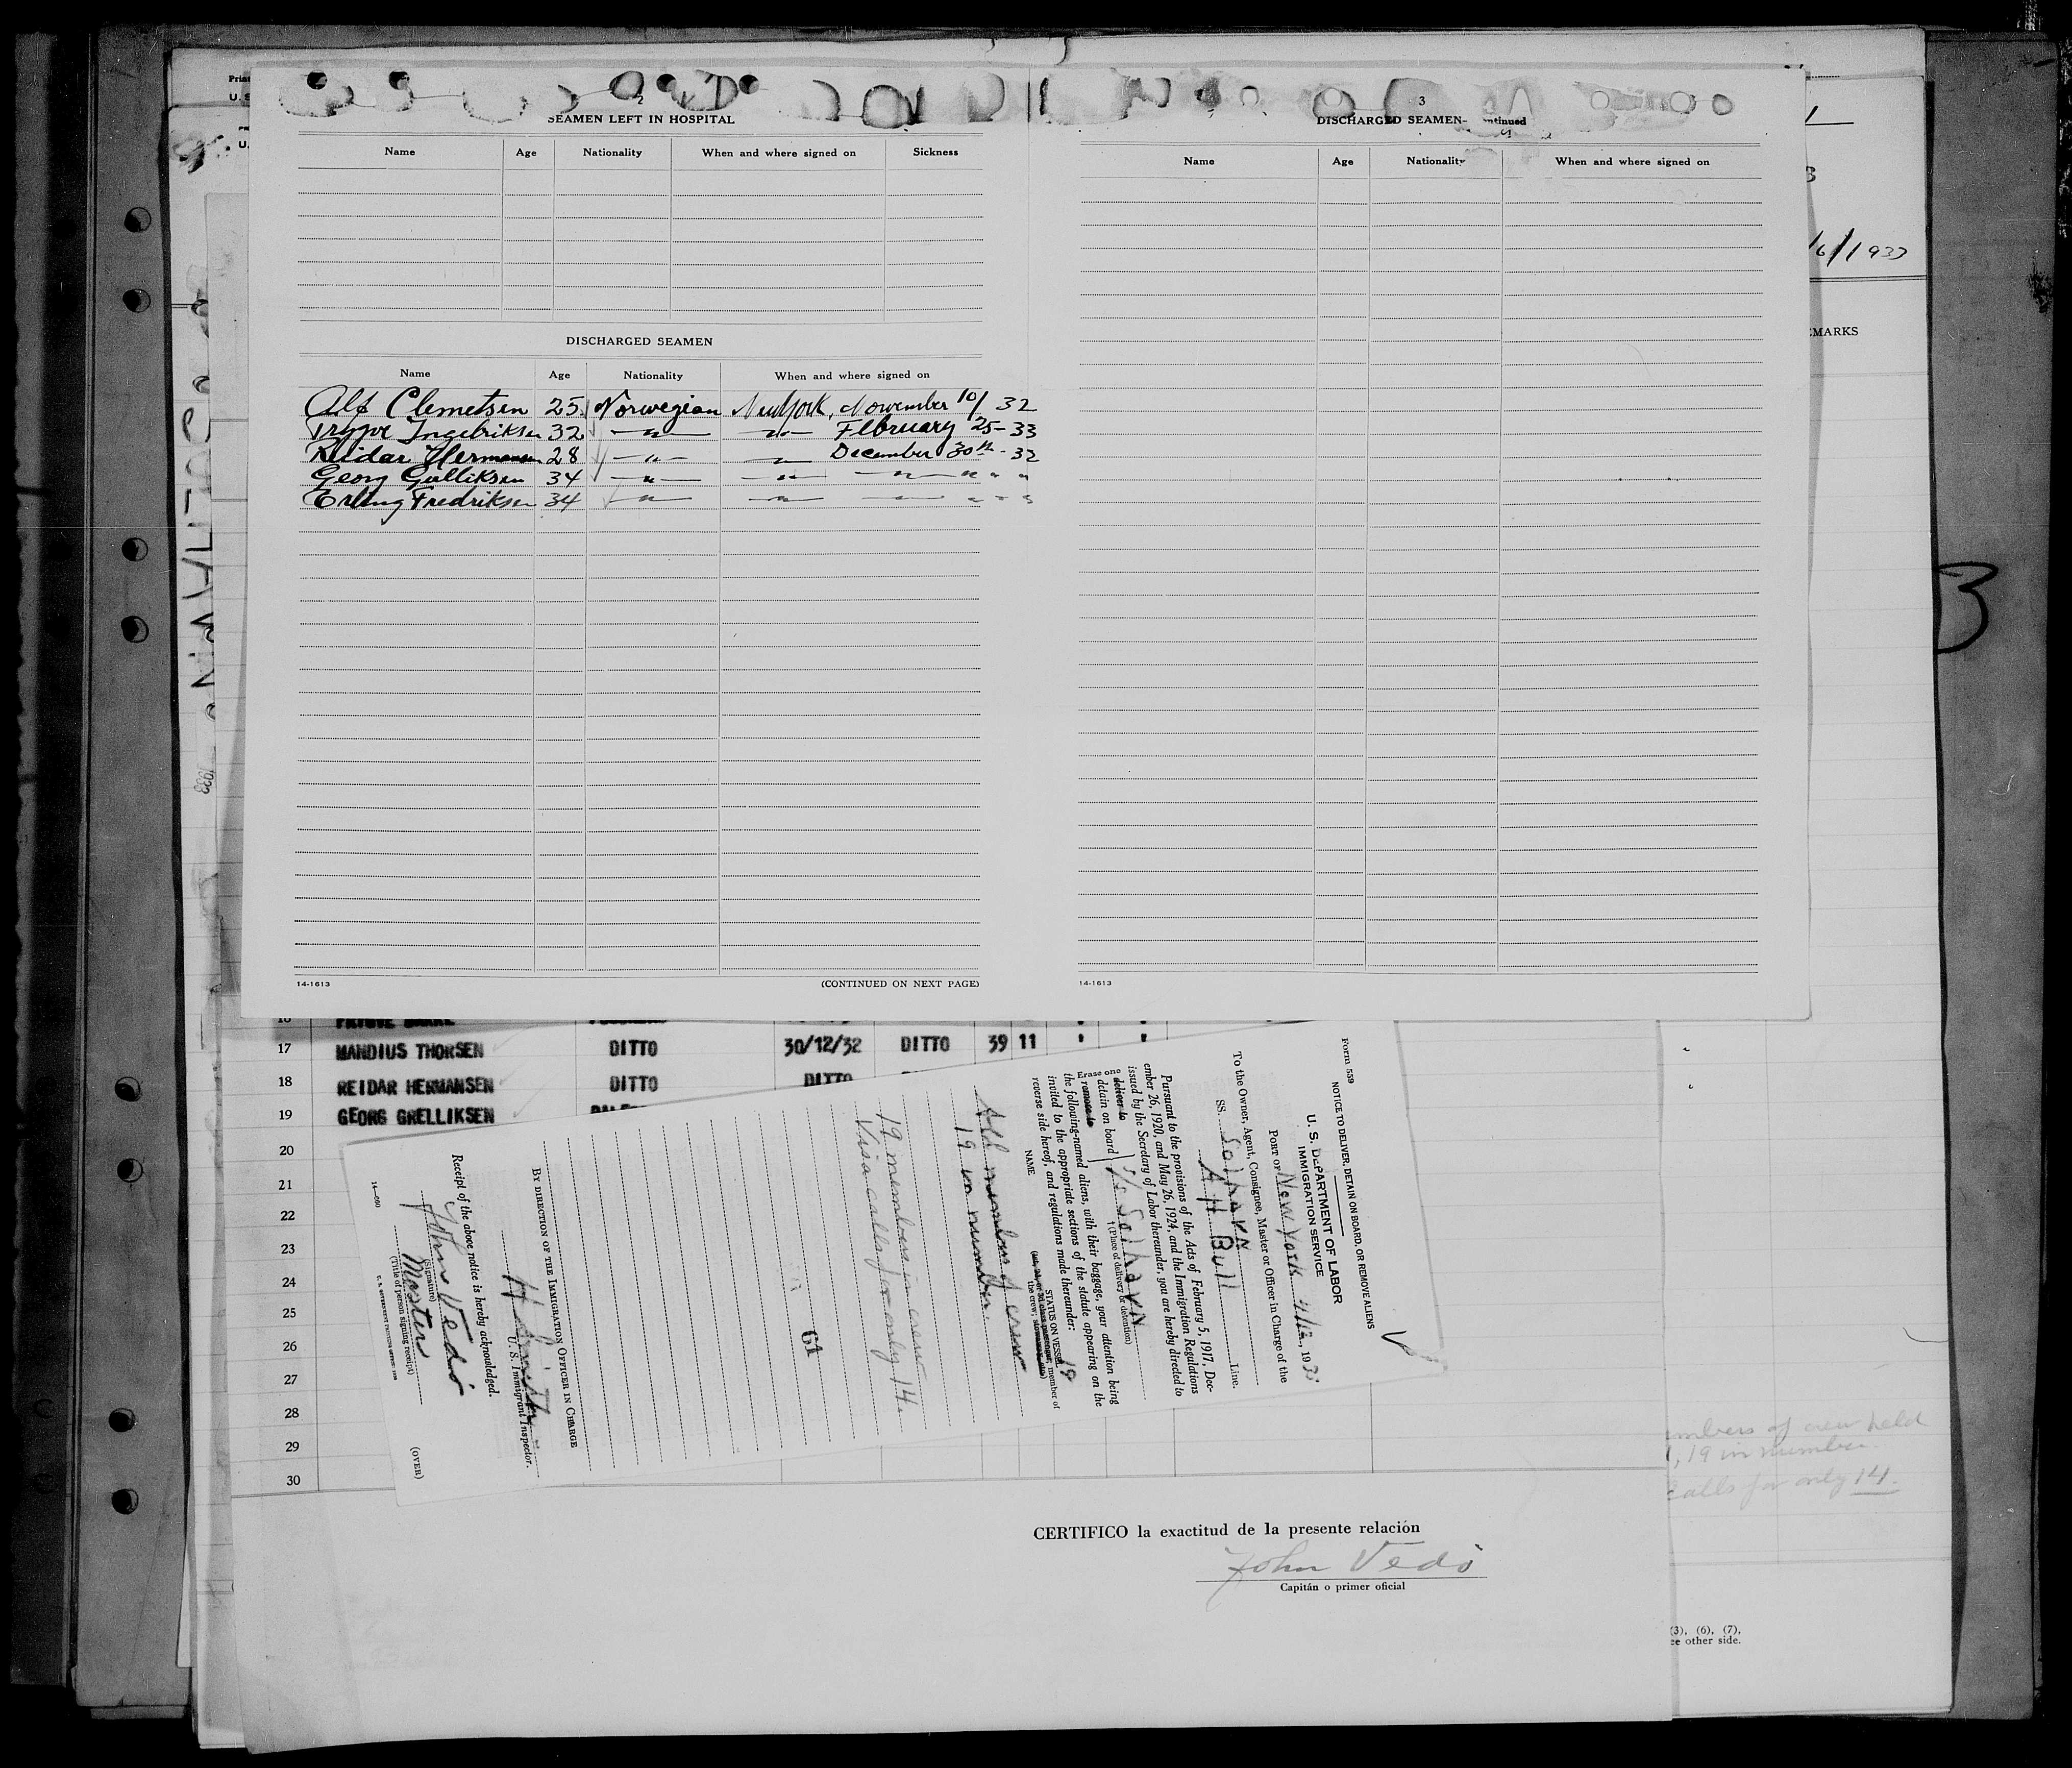 2
SEAMEN LEFT IN HOSPITAL
Name Age Nationality When and where signed on Sickness
DISCHARGED SEAMEN
Name Age Nationality When and where signed on
Alf Clemetsen 25 Norwegian New York, November 10/ 32
Trygve Ingebriksen 32 —"— —"— February 25-33
Reidar Hermansen 28 —"— — December 30th - 32
Georg Gulliksen 34 —"— —"— —"— " " "
Erling Fredriksen 34 —"— —"— —"— " " "
14-1613 (CONTINUED ON NEXT PAGE)
3
DISCHARGED SEAMEN—Continued
Name Age Nationality When and where signed on
14-1613
16/1933
MARKS
3
1933
17 MANDIUS THORSEN DITTO 30/12/32 DITTO 39 11 " "
18 REIDAR HERMANSEN DITTO DITTO
19 GEORG GRELLIKSEN
20
21
22
23
24
25
26
27
28
29
30
Form 559
NOTICE TO DELIVER, DETAIN ON BOARD, OR REMOVE ALIENS
U. S. DEPARTMENT OF LABOR
IMMIGRATION SERVICE
PORT OF New York 4/12, 1933
To the Owner, Agent, Consignee, Master or Officer in Charge of the
SS. Solhavn Line.
A H Bull
Pursuant to the provisions of the Acts of February 5, 1917, Dec-
ember 26, 1920, and May 26, 1924, and the Immigration Regulations
issued by the Secretary of Labor thereunder, you are hereby directed to
Erase one
deliver to
detain on board
remove to
S/S Solhavn
†(Place of delivery or detention)
the following-named aliens, with their baggage, your attention being
invited to the appropriate sections of the statute appearing on the
reverse side hereof, and regulations made thereunder: 19
NAME STATUS ON VESSEL
member of
the crew,
All members of crew
19 in number.
19 members in crew
Visa calls for only 14.
64
BY DIRECTION OF THE IMMIGRATION OFFICER IN CHARGE
U. S. Immigrant Inspector.
Receipt of the above notice is hereby acknowledged.
John Vedö
(Signature)
Master
(Title of person signing receipt)
14—690
(OVER)
mbers of crew held
, 19 in number.
calls for only 14.
CERTIFICO la exactitud de la presente relación
John Vedö
Capitán o primer oficial
(3), (6), (7),
ee other side.